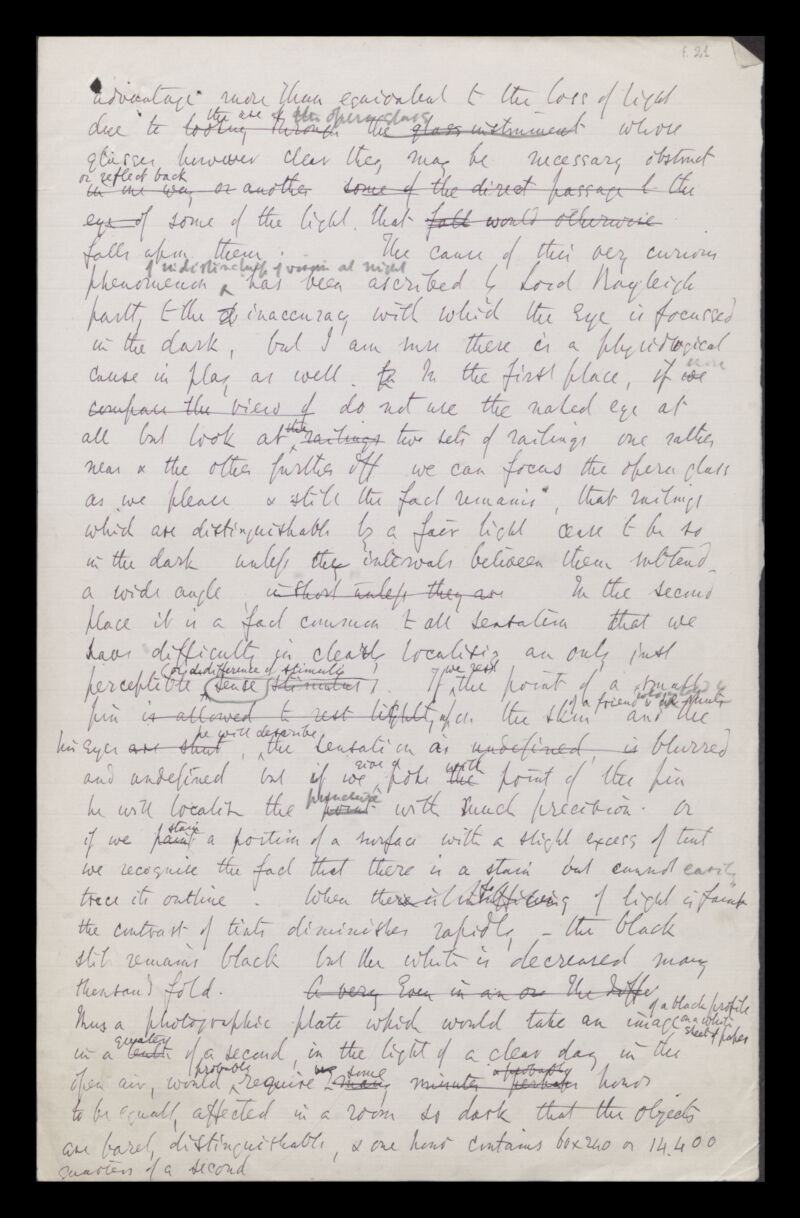 f. 21
advantage more than equivalent to the loss of light
the use of the opera glass
due to looking through the glass instrument whose
glasses, however clear they may be necessary obstruct
or reflect back
in one way or another some of the direct passage to the
eye of some of the light that fall would otherwise
falls upon them. The cause of this very curious
of indistinctness of vision at night
phenomenon has been ascribed by Lord Rayleigh
partly to the inaccuracy with which the Eye is focussed
in the dark, but I am sure there is a physiological
cause in play as well. In the first place, if we
compare the view of do not use the naked eye at
the
all but look at railings two sets of railings one rather
near & the other further off we can focus the opera glass
as we please & still the fact remains, that railings
which are distinguishable by a fair light cease to be so
in the dark unless the intervals between them subtend
a wide angle in short unless they are In the second
place it is a fact common to all sensation that we
have difficulty in clearly localising an only just
or difference of stimuli
perceptible sense stimulus. If we rest the point of a small
of a friend who shuts
pin is allowed to rest lightly upon the skin and the
he will describe
his eyes are shut, the sensation as undefined, is blurred
give a with
and undefined but if we poke the point of the pin
puncture
he will localise the point with much precision. Or
stain
if we paint a portion of a surface with a slight excess of tint
we recognise the fact that there is a stain but cannot easily
trace its outline. When there is of light is faint
the contrast of tints diminishes rapidly, – the black
still remains black but the white is decreased many
thousand fold. A very Even in an or The diffe
of a black profile
Thus a photographic plate which would take an image on a white
sheet of paper
quarter
in a tenth of a second, in the light of a clear day in the
probably some
open air, would require many minutes perhaps hours
to be equally affected in a room so dark that the objects
are barely distinguishable, & one hour contains 60x240 or 14.400
quarters of a second